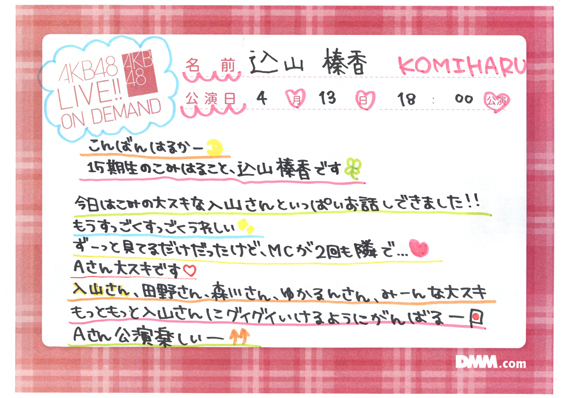 AKB48
LIVE!!
ON DEMAND
AKB
48
名 前 込山 榛香 KOMIHARU
公演日 4 月 13 日 18 : 00 公演
こんばんはるかー
15期生のこみはること、込山榛香です
今日はこみの大スキな入山さんといっぱいお話しできました!!
もうすっごくすっごくうれしい
ずーっと見てるだけだったけど、MCが2回も隣で...
Aさん大スキです
入山さん、田野さん、森川さん、ゆかるんさん、みーんな大スキ
もっともっと入山さんにグイグイいけるようにがんばるー
Aさん公演楽しいー
DMM.com